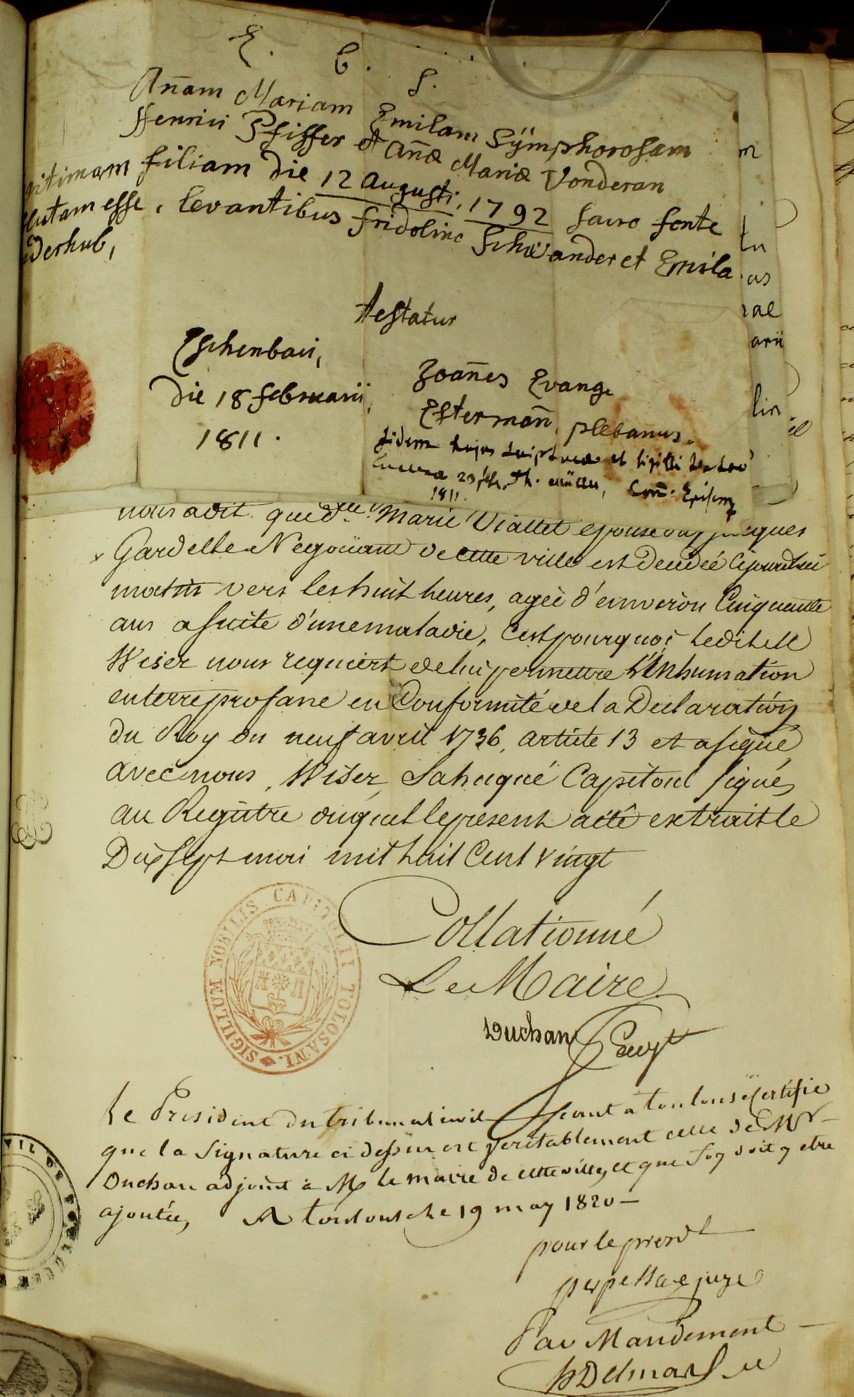 E. C. S.
Añam Mariam Emilam Sÿmphorosam
Henrici Pfiffer et Añæ Mariæ Vonderan
gitimam filiam die 12 augusti, 1792 sacro fonte
lutam esse, levantibus fridolino Schwander et Emila
derhub,
testatur
Eschenbaci,
die 18 februarii,
1811.
Joañes Evang
Estermañ, plebanus.
fidem hujus scripturae et sigilli testor
Lucerna 23 feb.
1811. Com. Episcop
nous a dit que d.lle Marie Viallet epouse du Jacques
Gardelle Negoçiant de cette ville est decedée aujourdhui
matin vers les huit heures, agée d'environ Cinquante
ans a suite d'une maladie, c'est pourquoi ledit
Wiser nous requiert de lui permettre l'Inhumation
en terre profane en Conformité de la Declaration
du Roy du neuf avril 1736, article 13 et a signé
avec nous, Wiser, Lahuqué Capitoul signés
au Registre original le present acte extrait le
Dix sept mai mil huit Cent vingt
Collationné
Le Maire
Duchan
SIGILIUM NOBILIS CAPITOLII TOLOSANI.
Le President du tribunal civil seant a toulouse Certifie
que la signature ci dessus est veritablement celle de Mr
Duchan adjoint à Mr le maire de cette ville, et que foy doit y etre
ajoutée, A toulouse le 19 may 1820
pour le presdt
juge
Par Mandement
Delmas